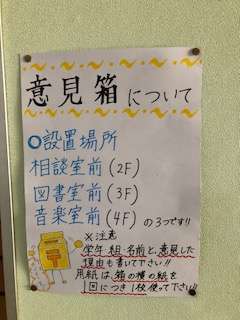 意見箱について
〇設置場所
相談室前(2F)
図書室前(3F)
音楽室前(4F)の3つです!!
※注意
学年 組 名前と、意見した
理由も書いて下さい!!
用紙は、箱の横の紙を
1回につき1枚使って下さい!!